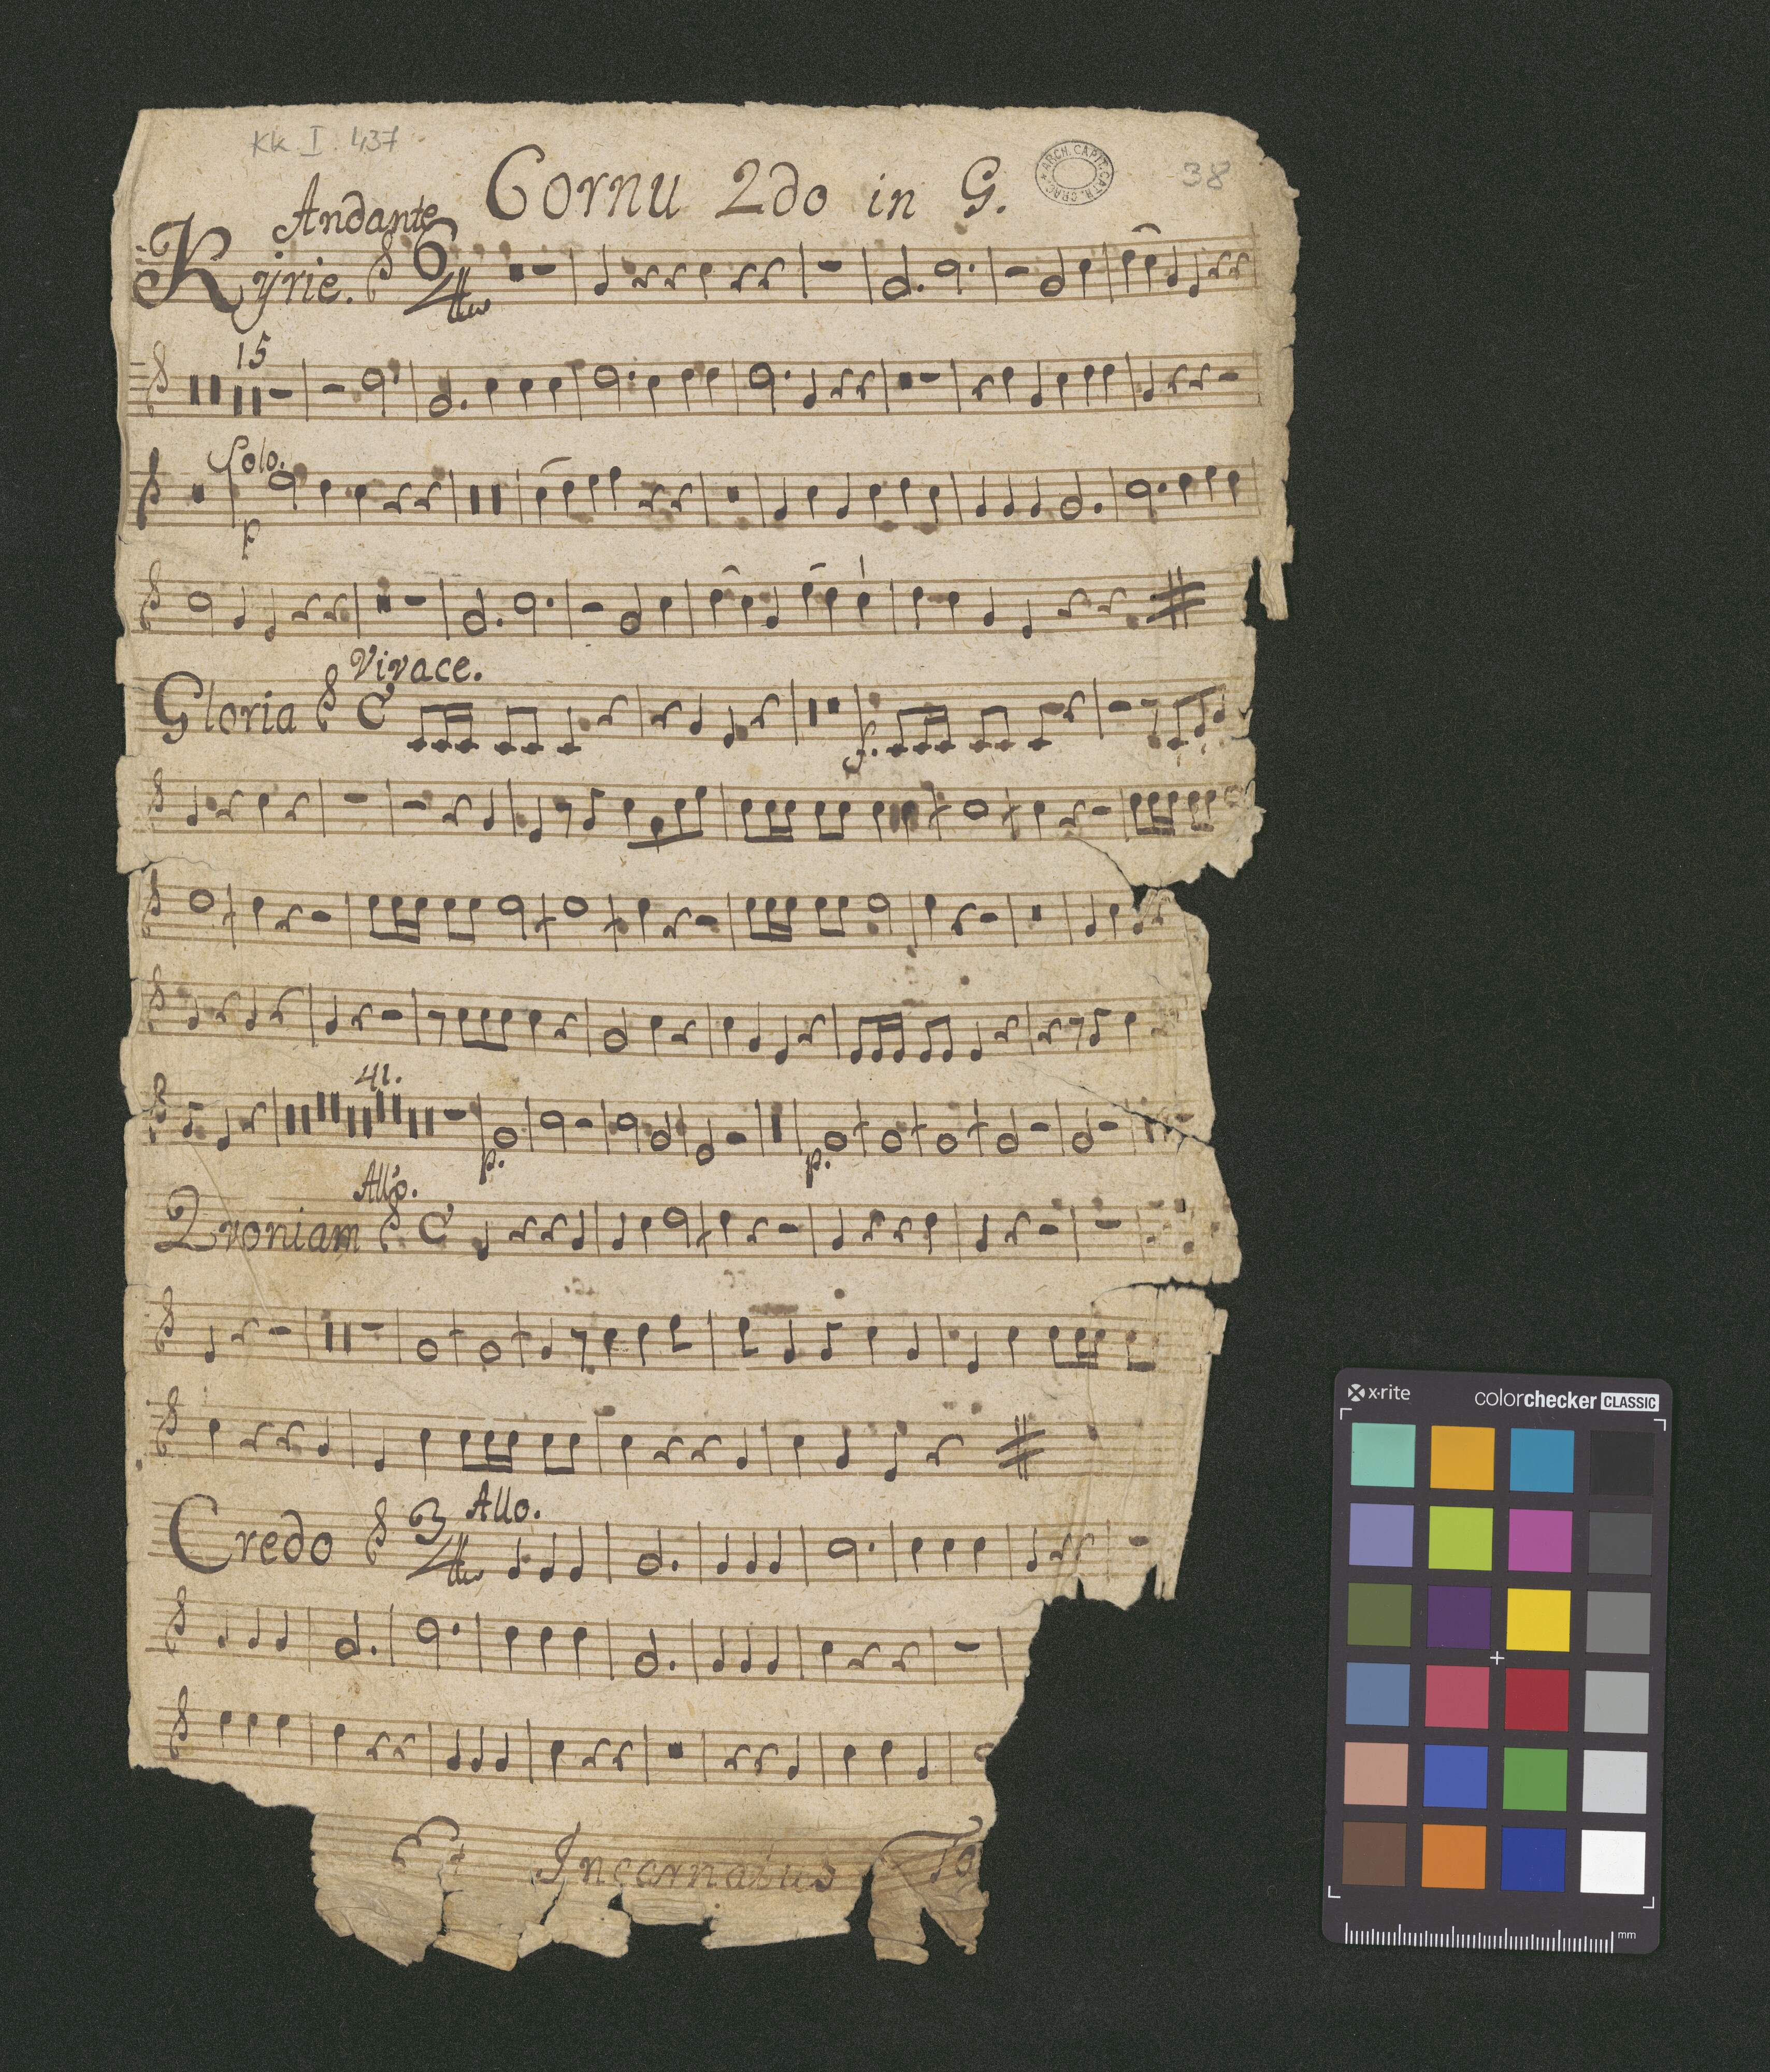 Kk I. 437
Cornu 2do in G.
ARCH. CAPIT. CATH. CRAC.
38
Andante
Kyrie. 6/4
15
Solo.
p
Vivace.
Gloria C
f.
41.
p. p.
Allo.
Qvoniam C
Allo.
Credo 3/4
Et Incarnatus Ta
x·rite
colorchecker CLASSIC
mm